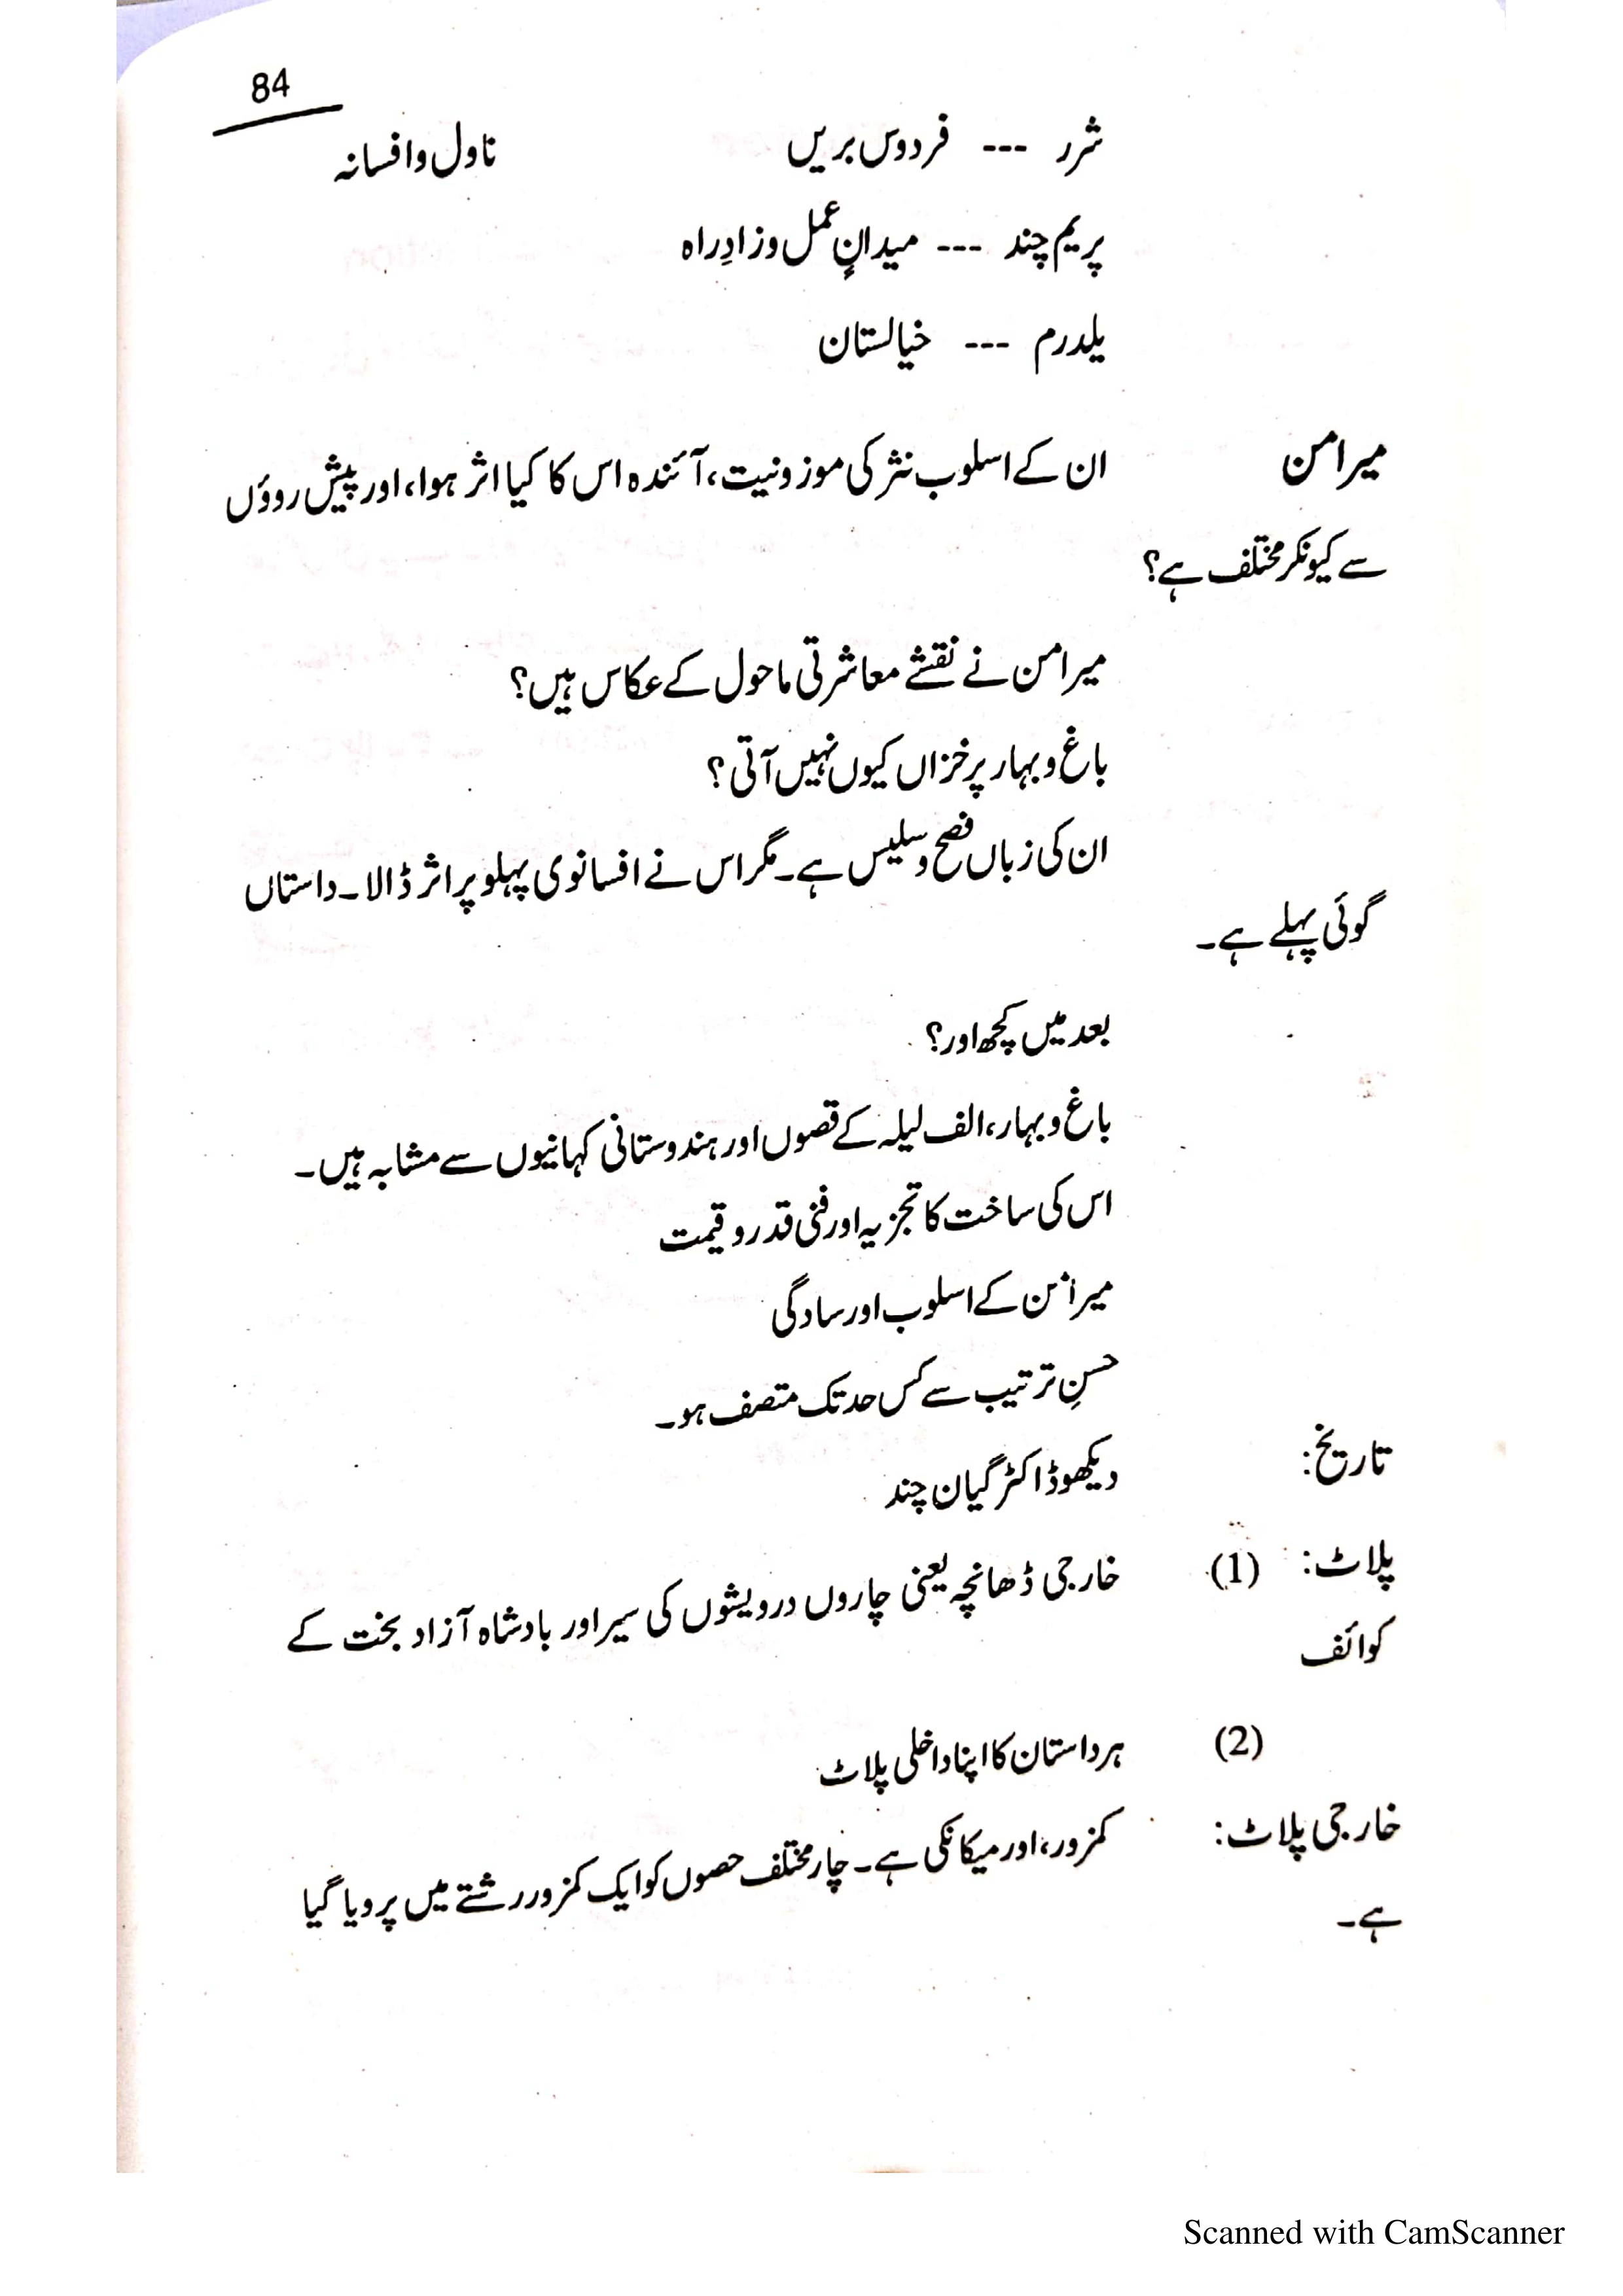 84
شرر --- فردوس بریں ناول و افسانہ
پریم چند --- میدانِ عمل و زادِ راہ
یلدرم --- خیالستان
میرامن ان کے اسلوب نثر کی موزونیت، آئندہ اس کا کیا اثر ہوا، اور پیش روؤں
سے کیونکر مختلف ہے؟
میرامن نے نقشے معاشرتی ماحول کے عکاس ہیں؟
باغ و بہار پر خزاں کیوں نہیں آتی؟
ان کی زباں فصح و سلیس ہے۔ مگر اس نے افسانوی پہلو پر اثر ڈالا۔ داستاں
گوئی پہلے ہے۔
بعد میں کچھ اور؟
باغ و بہار، الف لیلہ کے قصوں اور ہندوستانی کہانیوں سے مشابہ ہیں۔
اس کی ساخت کا تجزیہ اور فنی قدر و قیمت
میرامن کے اسلوب اور سادگی
حسنِ ترتیب سے کس حد تک متصف ہو۔
تاریخ: دیکھو ڈاکٹر گیان چند
پلاٹ: (1) خارجی ڈھانچہ یعنی چاروں درویشوں کی سیر اور بادشاہ آزاد بخت کے
کوائف
(2) ہر داستان کا اپنا داخلی پلاٹ
خارجی پلاٹ: کمزور، اور میکانکی ہے۔ چار مختلف حصوں کو ایک کمزور رشتے میں پرویا گیا
ہے۔
Scanned with CamScanner